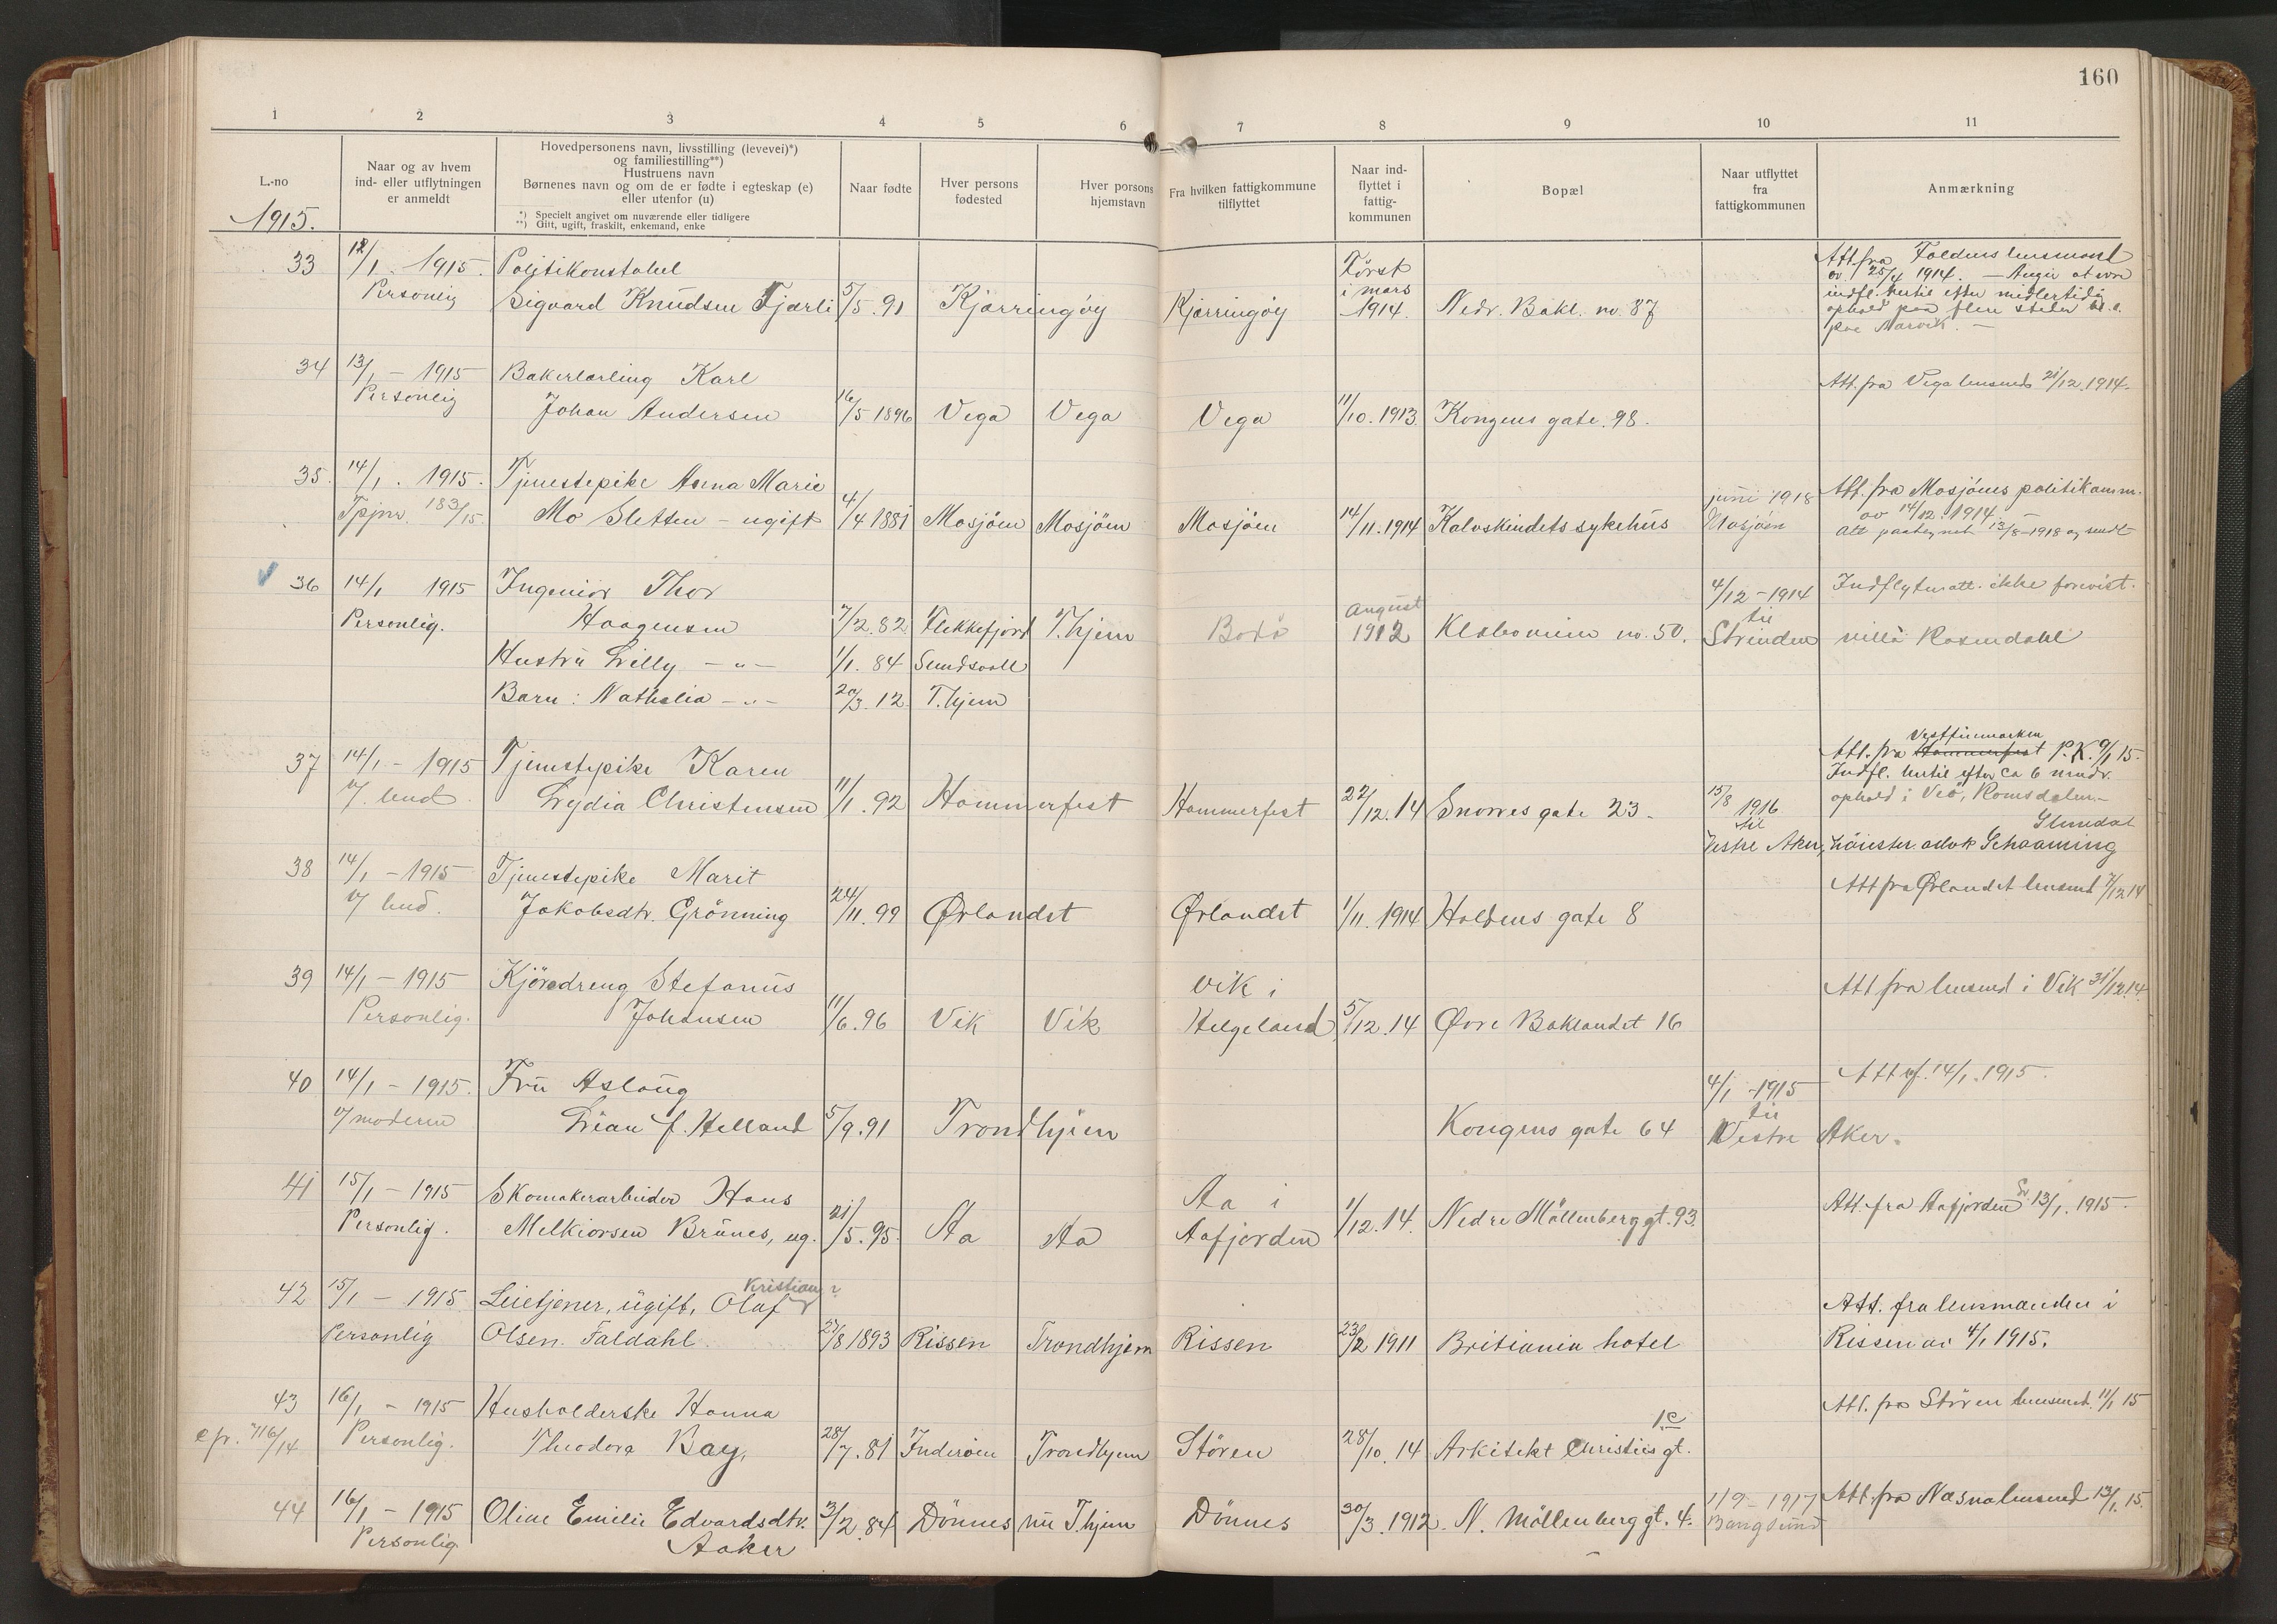 160
1 2 3 4 5 6 7 8 9 10 11
L.-no
1915.
Naar og av hvem
ind- eller utflytningen
er anmeldt
Hovedpersonens navn, livsstilling (levevei)*)
og familiestilling**)
Hustruens navn
Børnenes navn og om de er fødte i egteskap (e)
eller utenfor (u)
*) Specielt angivet om nuværende eller tidligere
**) Gift, ugift, fraskilt, enkemand, enke
Naar fødte
Hver persons
fødested
Hver porsons
hjemstavn
Fra hvilken fattigkommune
tilflyttet
Naar ind-
flyttet i
fattig-
kommunen
Bopæl
Naar utflyttet
fra
fattigkommunen
Anmærkning
33 12/1. 1915. Politikonstabel Først Att. fra Foldens lensmand
Personlig Sigvard Knudsen Fjærli 5/5.91 Kjærringøy Kjærringøy i mars 1914. Nedr. Bakl. no. 87 av 25/4 1914. — Angir at være
indfl. hertil efter midlertidig
ophold paa flere steder bl. a.
paa Narvik. —
34 13/1 – 1915 Bakerlærling Karl Att. fra Vega lensmd 21/12.1914.
Personlig Johan Andersen 16/5 1896 Vega Vega Vega 11/10.1913. Kongens gate 98.
35. 14/1. 1915. Tjenestepike Anna Marie juni 1918 Att. fra Mosjöens politikamm.
Tpjnr. 183/15. Mo Sletten – ugift 4/4 1881 Mosjöen Mosjöen Mosjöen 14/11.1914 Kalvskindets sykehus Mosjöen av 14/12.1914. —
Att paategnet 13/8-1918 og sendt
36 14/1 1915 Ingeniör Thor 4/12 – 1914 Indflytn.att. ikke forevist.
Personlig. Haagensen 7/2.82 Flekkefjord T.hjem Bodø august 1912 Klæbuveien no. 50. til Strinden villa Rosendahl
Hustru Lilly –"– 1/1. 84 Sundsvall
Barn: Nathalia –"– 20/3.12. T.hjem
37 14/1 – 1915 Tjenestepike Karen Att. fra Hammerfest Vestfinmarken P.K. 9/1 15.
v/ bud. Lydia Christensen 11/1.92 Hammerfest Hammerfest 22/12.14 Snorres gate 23. 15/8 1916 Indfl. hertil efter ca 6 mndr.
ophold i Veö, Romsdalen –
til
Vestre Aker, höiester. advok Schaaning
38 14/1 – 1915 Tjenestepike Marit Att fra Ørlandet lensmd 7/12 14
v/ bud. Jakobsdtr. Grönning 24/11.99 Ørlandet Ørlandet 1/11.1914 Holdens gate 8
39 14/1 – 1915 Kjöredreng Stefanus Vik i Att fra lensmd i Vik 31/12.14.
Personlig. Johansen 11/6.96 Vik Vik Helgeland 5/12.14 Øvre Baklandet 16
40 14/1 – 1915. Fru Aslaug 4/1 – 1915 Att uf. 14/1.1915.
v/ moderen Lian f. Helland 5/9.91 Trondhjem Kongens gate 64 til
Vestre Aker.
41 15/1 – 1915 Skomakerarbeider Hans Aa i Att. fra Aafjorden 13/1. 1915.
Personlig. Melkiorsen Brünes, ug. 21/5.95. Aa Aa Aafjorden 1/12.14. Nedre Möllenberggt. 93.
42 15/1 – 1915 Leietjener, ugift, Olaf Kristian? Att. fra lensmanden i
Personlig Olsen Faldahl. 27/8 1893 Rissen Trondhjem Rissen 23/2 1911 Britiania hotel Rissen av 4/1 1915.
43 16/1 – 1915 Husholderske Hanna Att. fra Stören lensmd. 11/1 15
cfr. 716/14 Personlig. Theodora Bay, 28/7.81 Inderöen Trondhjem Stören 28/10.14 Arkitekt Christies gt. 1c
44 16/1 – 1915 Oline Emilie Edvardsdtr. 3/2.84 Dönnes nu T.hjem Dönnes 30/3.1912. N. Möllenberggt. 4. 1/9 – 1917 Att. fra Næsna lensmd 13/1. 15.
Personlig Aaker Bangsund